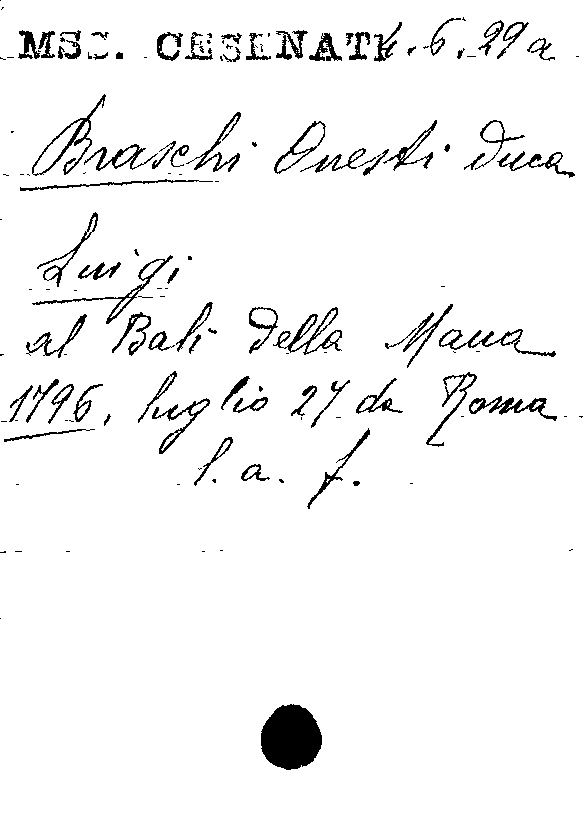 MSS. CESENATI. 6. 29 a
Braschi Onesti duca
Luigi
al Balì della Marra
1796, luglio 27 da Roma
l. a. f.